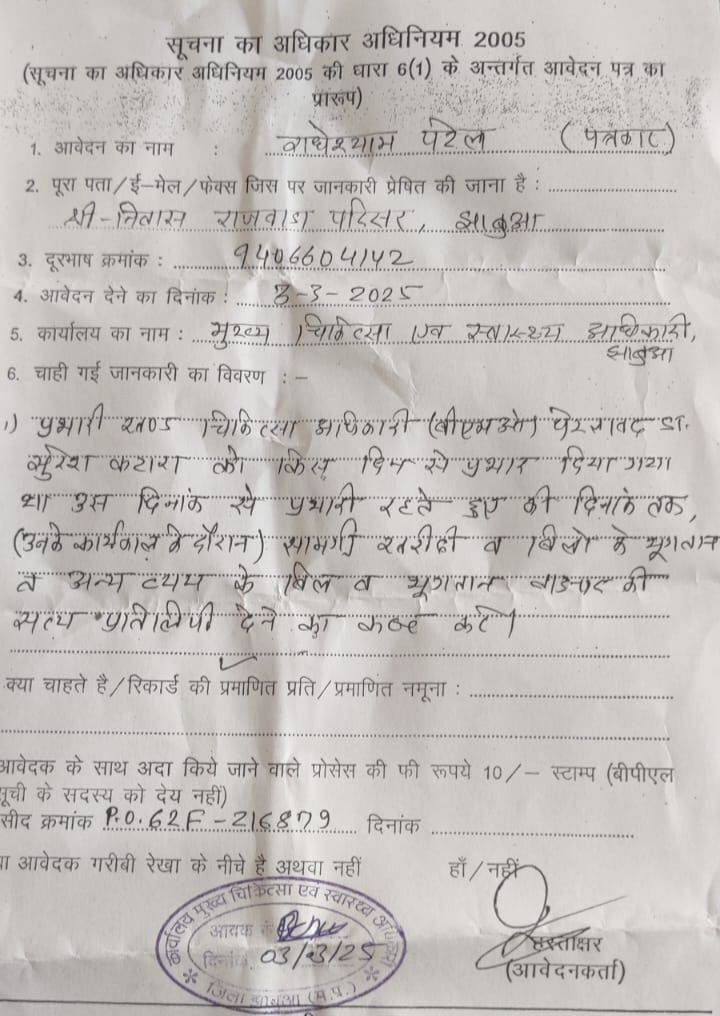 सूचना का अधिकार अधिनियम 2005
(सूचना का अधिकार अधिनियम 2005 की धारा 6(1) के अन्तर्गत आवेदन पत्र का
प्रारूप)
1. आवेदन का नाम : राधेश्याम पटेल (पत्रकार)
2. पूरा पता/ई-मेल/फेक्स जिस पर जानकारी प्रेषित की जाना है :
श्री-निवास राजवाडा परिसर, झाबुआ
3. दूरभाष क्रमांक : 9406604142
4. आवेदन देने का दिनांक : 3-3-2025
5. कार्यालय का नाम : मुख्य चिकित्सा एवं स्वास्थ्य अधिकारी,
झाबुआ
6. चाही गई जानकारी का विवरण : –
1) प्रभारी खण्ड चिकित्सा अधिकारी (बीएमओ) पेटलावद डा.
सुरेश कटारा को किस दिन से प्रभार दिया गया
था उस दिनांक से प्रभारी रहते हुए की दिनांक तक,
(उनके कार्यकाल के दौरान) सामग्री खरीदी व बिलो के भूगतान
व अन्य व्यय के बिल व भूगतान वाउचर की
सत्य प्रतिलिपी देने का कष्ट करे।
क्या चाहते है/रिकार्ड की प्रमाणित प्रति/प्रमाणित नमूना :
आवेदक के साथ अदा किये जाने वाले प्रोसेस की फी रूपये 10/– स्टाम्प (बीपीएल
सूची के सदस्य को देय नहीं)
सीद क्रमांक P.O. 62F-216879 दिनांक
या आवेदक गरीबी रेखा के नीचे है अथवा नहीं हाँ/नहीं
कार्यालय मुख्य चिकित्सा एवं स्वास्थ्य अधिकारी
आवक
दिनांक 03/03/25
जिला झाबुआ (म.प्र.)
हस्ताक्षर
(आवेदनकर्ता)